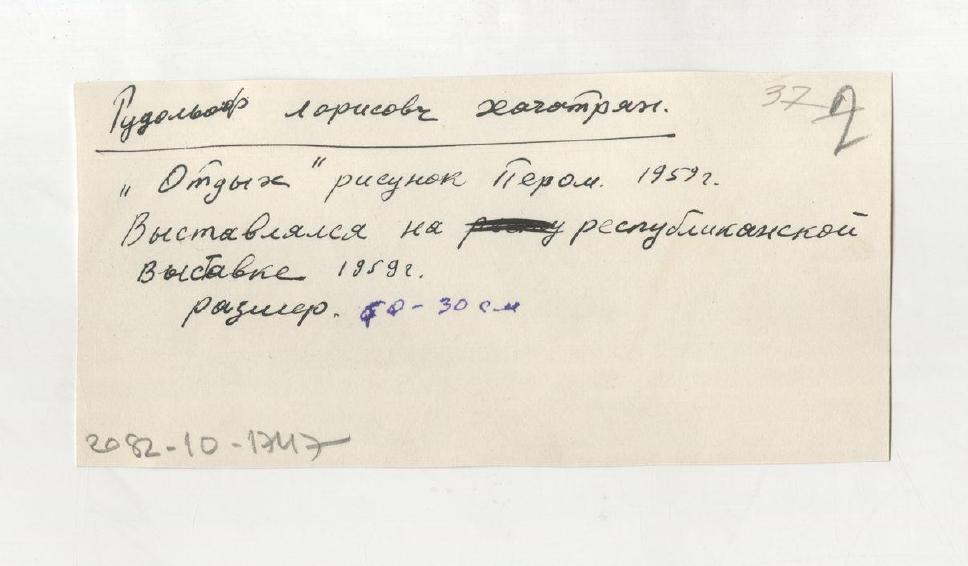 Рудольф Лорисовч Хачатрян.
37
2
"Отдых" рисунок Пером. 1959г.
Выставлялся на республиканской
выставке 1959г.
размер. - 30 см
2082-10-1747